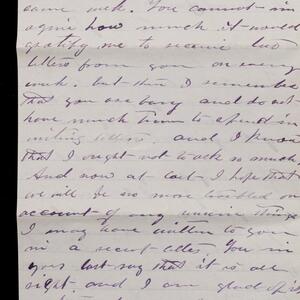 came week. You cannot im-
agine how much it would
gratify me to receive two
letters from you on every
week. but then I remember
that you are busy and do not
have much time to spend in
writing letters and I know
that I ought not to ask so much.
And now at last I hope that
we will be no more troubled on
account of any unwise things
I may have written to you
in a recent letter. You in
your last say that it is all
right. and I am glad of it